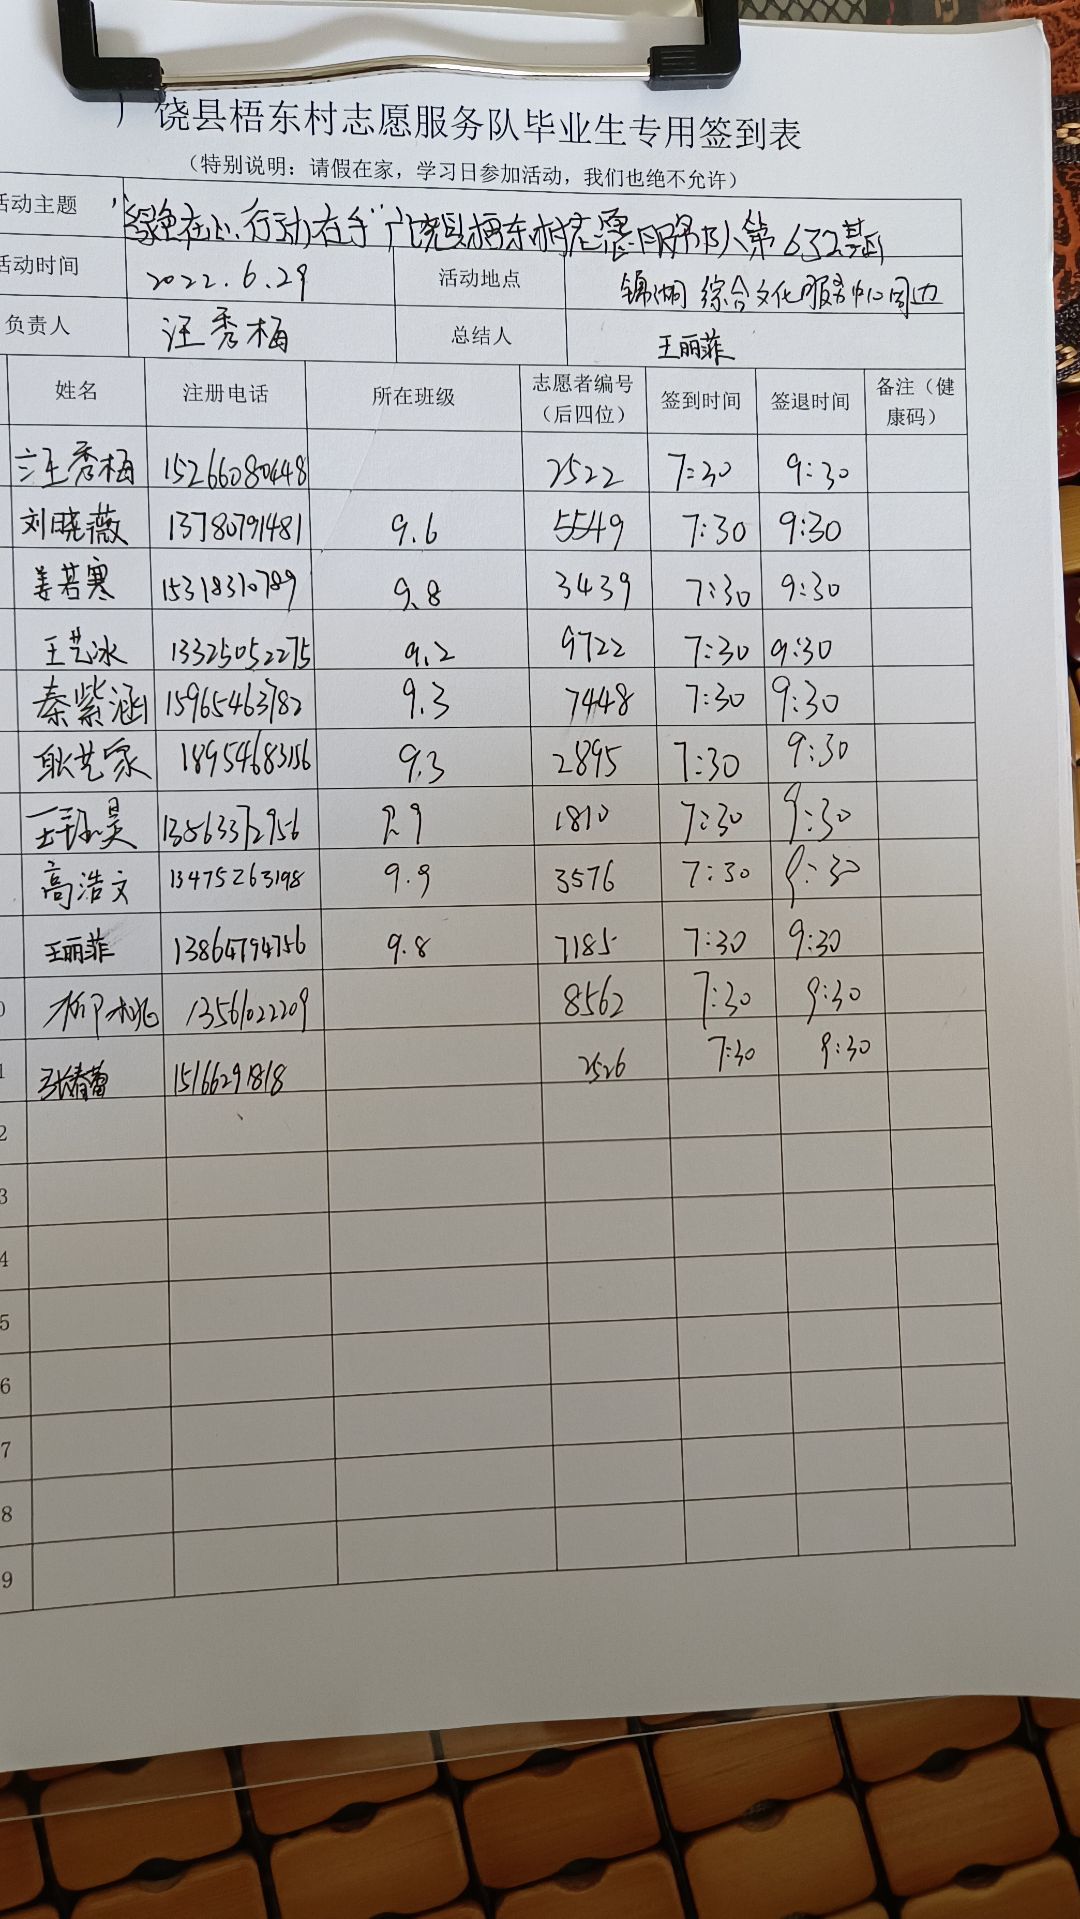 广饶县梧东村志愿服务队毕业生专用签到表
（特别说明：请假在家，学习日参加活动，我们也绝不允许）
活动主题 “绿色在心、行动在手”广饶县梧东村志愿服务队第632期
活动时间 2022.6.29 活动地点 锦湖综合文化服务中心周边
负责人 汪秀梅 总结人 王丽菲
姓名 注册电话 所在班级 志愿者编号（后四位） 签到时间 签退时间 备注（健康码）
汪秀梅 15266080448 2522 7:30 9:30
刘晓薇 13780791481 9.6 5549 7:30 9:30
姜若寒 15318310789 9.8 3439 7:30 9:30
王艺冰 13325052275 9.2 9722 7:30 9:30
秦紫涵 15965463782 9.3 7448 7:30 9:30
耿艺家 18954683156 9.3 2895 7:30 9:30
13863372956 9.9 1810 7:30 9:30
高浩文 13475263198 9.9 3576 7:30 9:30
王丽菲 13864794756 9.8 7185 7:30 9:30
0 柳桃 13561022209 8562 7:30 9:30
1 张春蕾 15166291818 2526 7:30 9:30
2
3
4
5
6
7
8
9